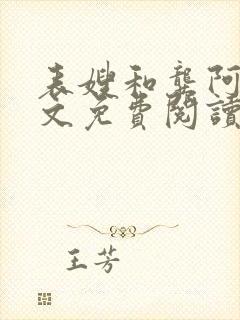 表嫂和龔阿
文免費閱讀
王芳